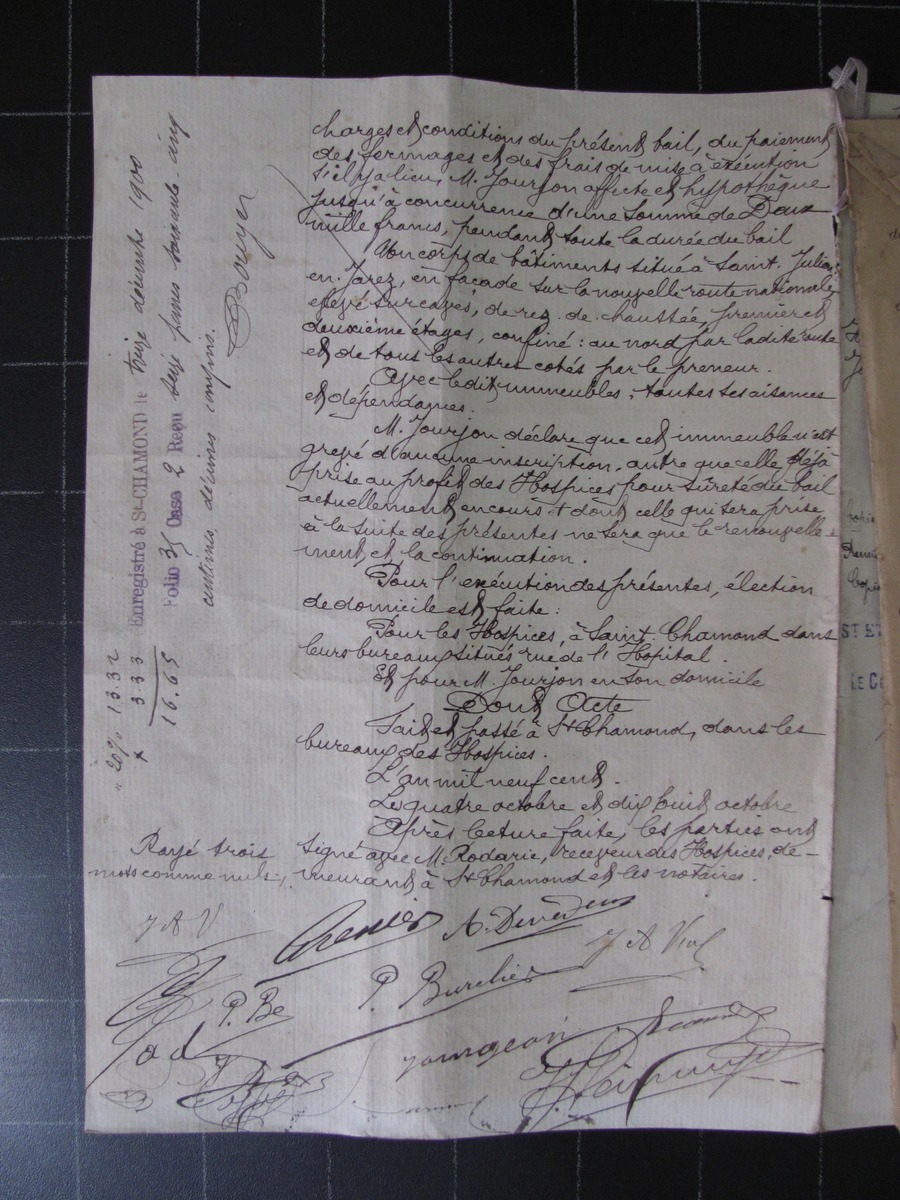 charges et conditions du présent bail, du paiement
des fermages et des frais de mise à exécution
s'il y a lieu, M. Jourjon affecte et hypothèque
jusqu'à concurrence d'une somme de Deux
mille francs, pendant toute la durée du bail
Un corps de bâtiments situé à Saint Julien
en Jarez, en façade sur la nouvelle route nationale,
élevé sur caves, de rez de chaussée, premier et
deuxième étages, confiné : au nord par ladite route
et de tous les autres cotés par le preneur.
Avec ledit immeubles, toutes ses aisances
et dépendances.
M. Jourjon déclare que cet immeuble n'est
grevé d'aucune inscription, autre que celle déjà
prise au profit des Hospices pour sûreté du bail
actuellement en cours et dont celle qui sera prise
à la suite des présentes ne sera que le renouvelle-
ment et la continuation.
Pour l'exécution des présentes, élection
de domicile est faite :
Pour les Hospices, à Saint Chamond dans
leurs bureaux situés rue de l'Hôpital.
Et pour M. Jourjon en son domicile
Dont Acte
Fait et passé à St Chamond, dans les
bureaux des Hospices.
L'an mil neuf cent.
Les quatre octobre et dix huit octobre
Après lecture faite, les parties ont
signé avec M. Rodarie, receveur des Hospices, de-
meurant à St Chamond et les notaires.
Rayé trois
mots comme nuls.
Enregistré à St-CHAMOND le treize décembre 1900
Folio 35 Case 2 Reçu seize francs soixante-cinq
centimes décimes compris.
Boyer
20% 13.32
+ 3.33
16.65
J A V
Grenier
A. Devedeux
J A Vial
P. Be
P. Burelier
Jourgeon
ST ET
LE C